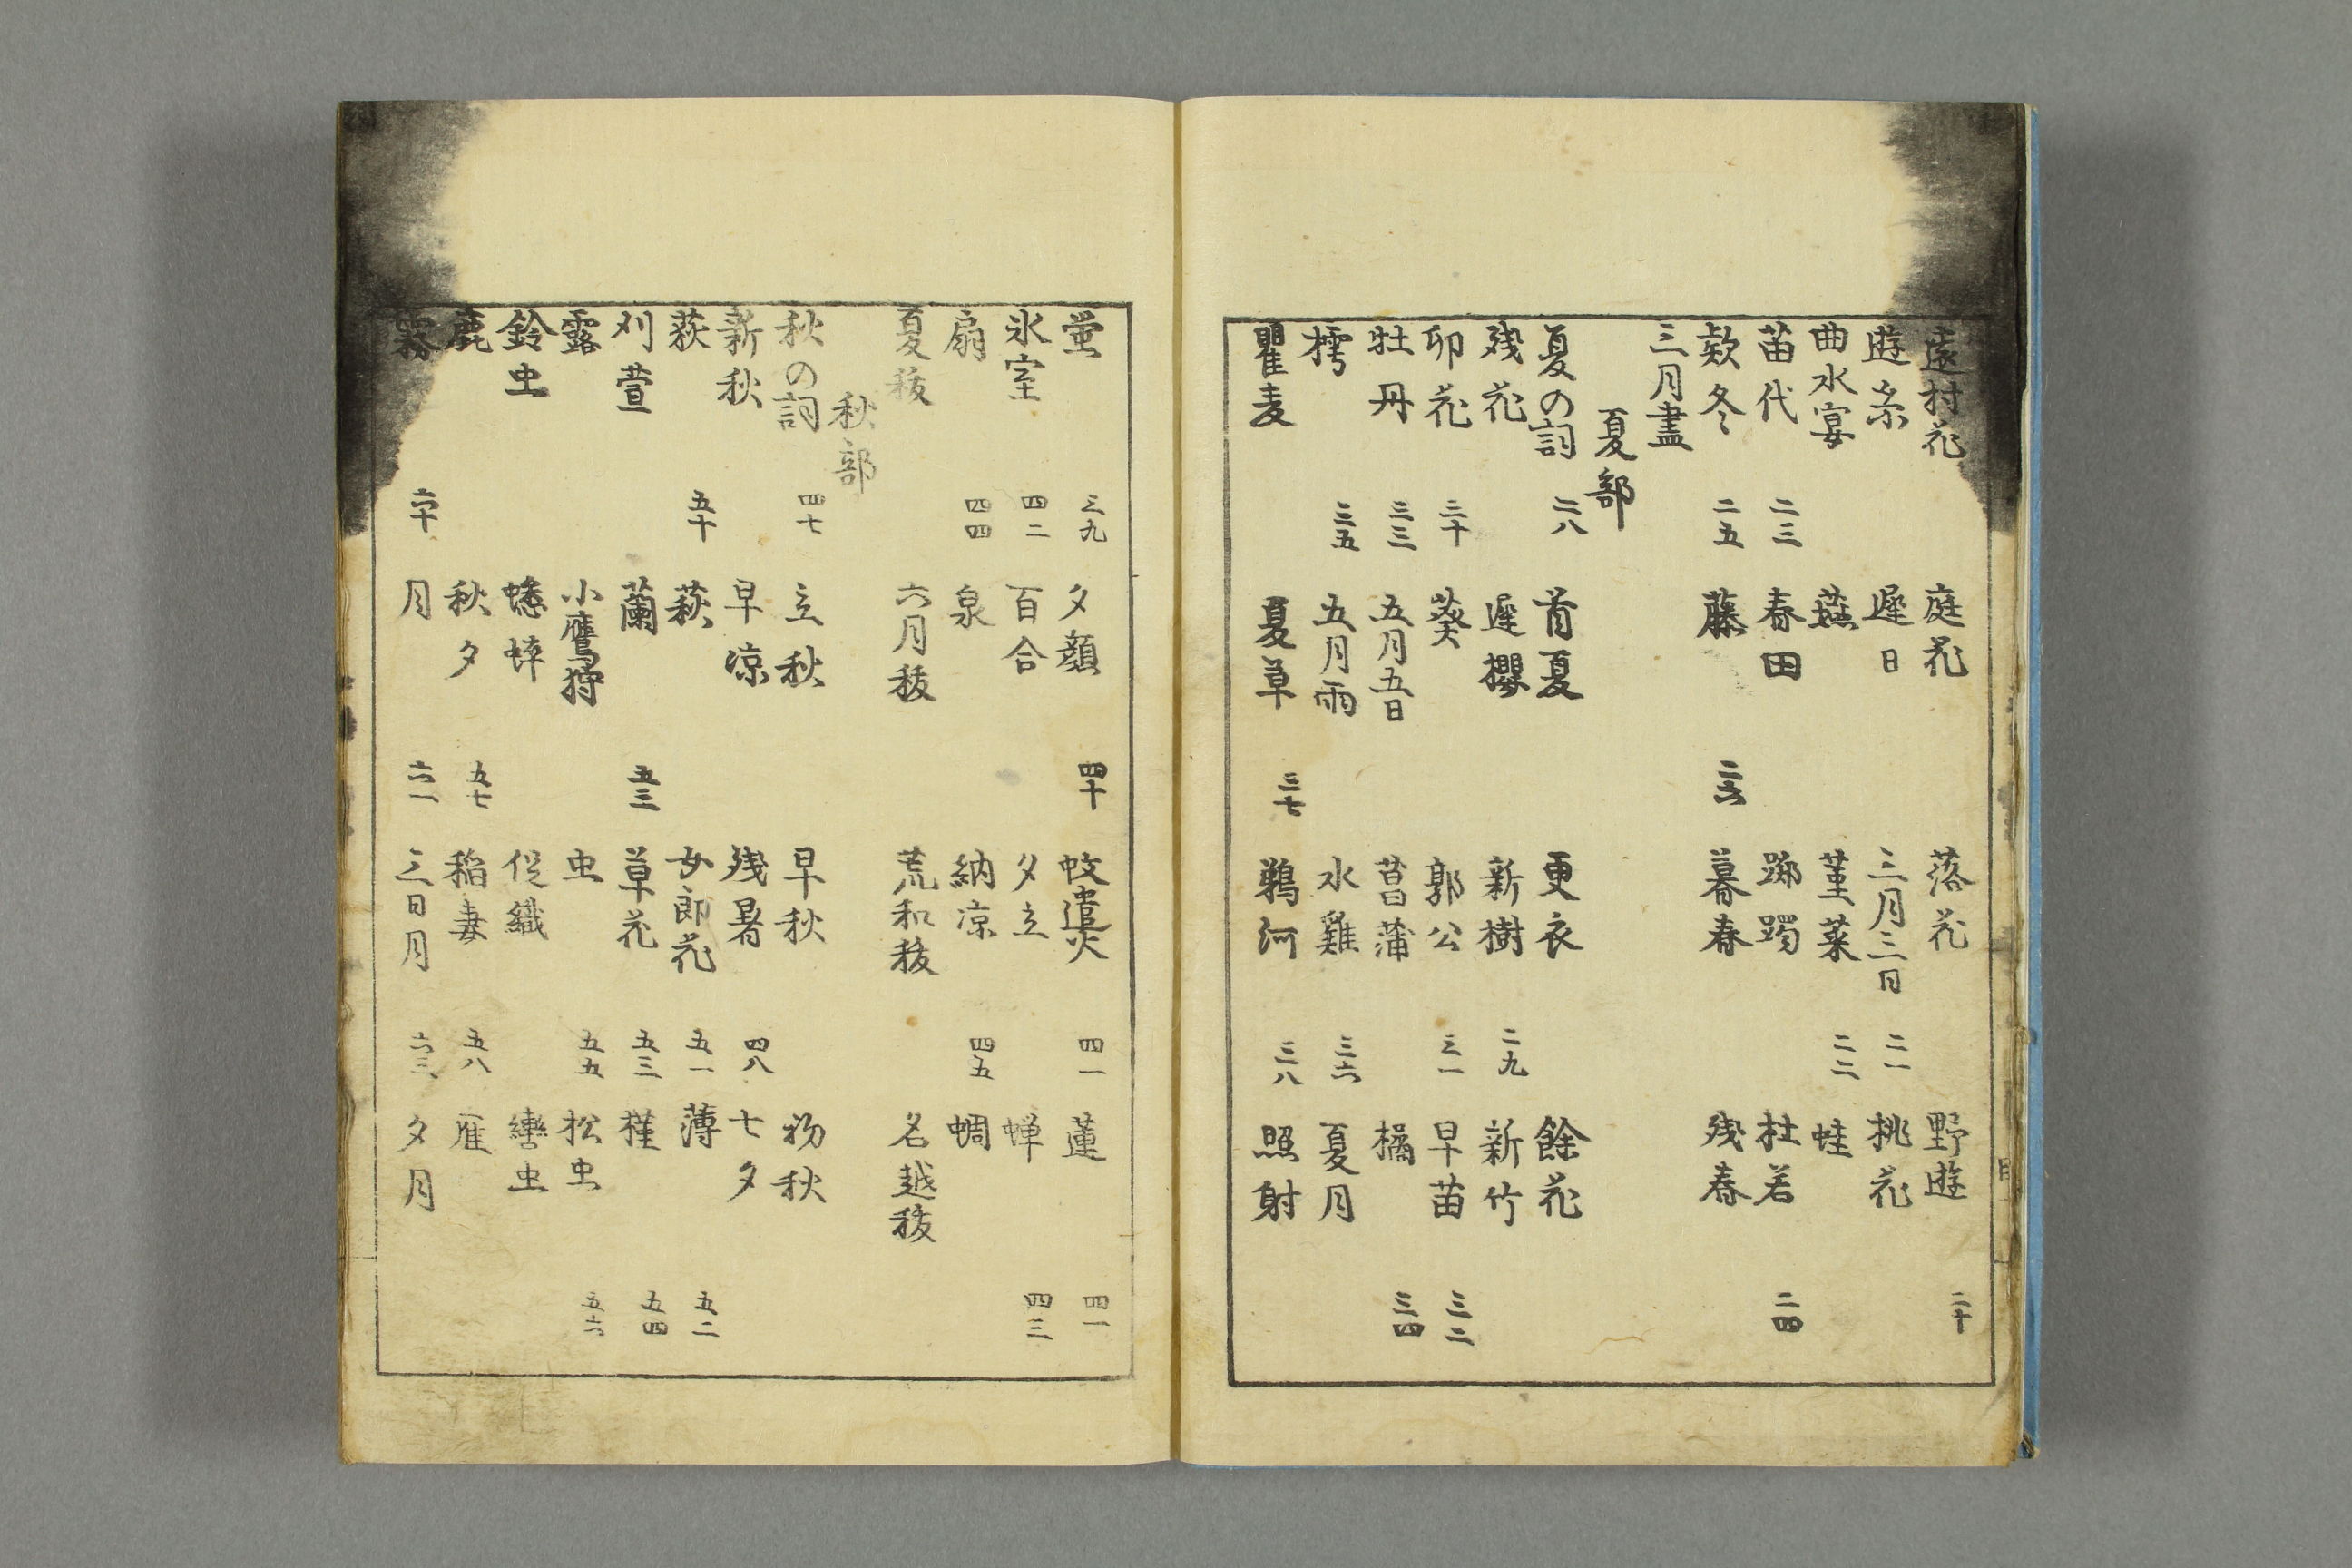 遠村花 庭花 落花 野遊 二十
遊糸 遅日 三月三日 二一 桃花
曲水宴 燕 菫菜 二二 蛙
苗代 二三 春田 躑躅 杜若 二四
款冬 二五 藤 二六 暮春 残春
三月盡
夏部
夏の詞 二八 首夏 更衣 餘花
残花 遅櫻 新樹 二九 新竹
卯花 三十 葵 郭公 三一 早苗 三二
牡丹 三三 五月五日 菖蒲 橘 三四
樗 三五 五月雨 水雞 三六 夏月
瞿麦 夏草 三七 鵜河 三八 照射
蛍 三九 夕顔 四十 蚊遣火 四一 蓮 四一
氷室 四二 百合 夕立 蝉 四三
扇 四四 泉 納凉 四五 蜩
夏秡 六月秡 荒和秡 名越秡
秋部
秋の詞 四七 立秋 早秋 初秋
新秋 早凉 残暑 四八 七夕
荻 五十 萩 女郎花 五一 薄 五二
刈萱 蘭 五三 草花 五三 槿 五四
露 小鷹狩 虫 五五 松虫 五六
鈴虫 蟋蟀 促織 轡虫
鹿 秋夕 五七 稲妻 五八 雁
霧 六十 月 六一 三日月 六三 夕月